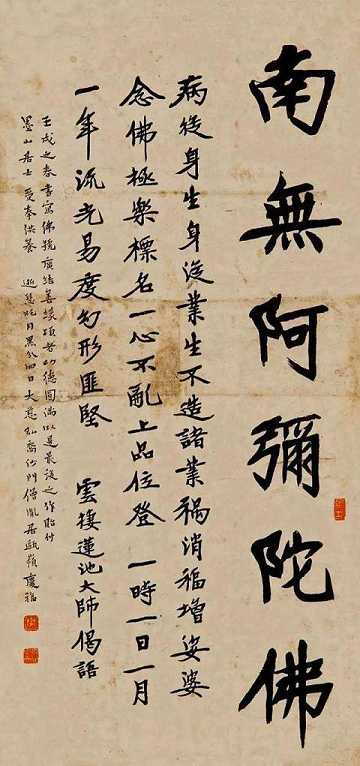 南無阿彌陀佛
病從身生身從業生不造諸業禍消福增娑婆
念佛極樂標名一心不亂上品位登 一時一日一月
一年流光易度幻形匪堅 雲棲蓮池大師偈語
壬戌之春書寫佛號廣結善緣 者功德圓滿以是最後之作貽付
墨山居士 受奉供養 逝瑟吒月黑分四日大慈弘裔沙門僧胤居甌嶺慶福